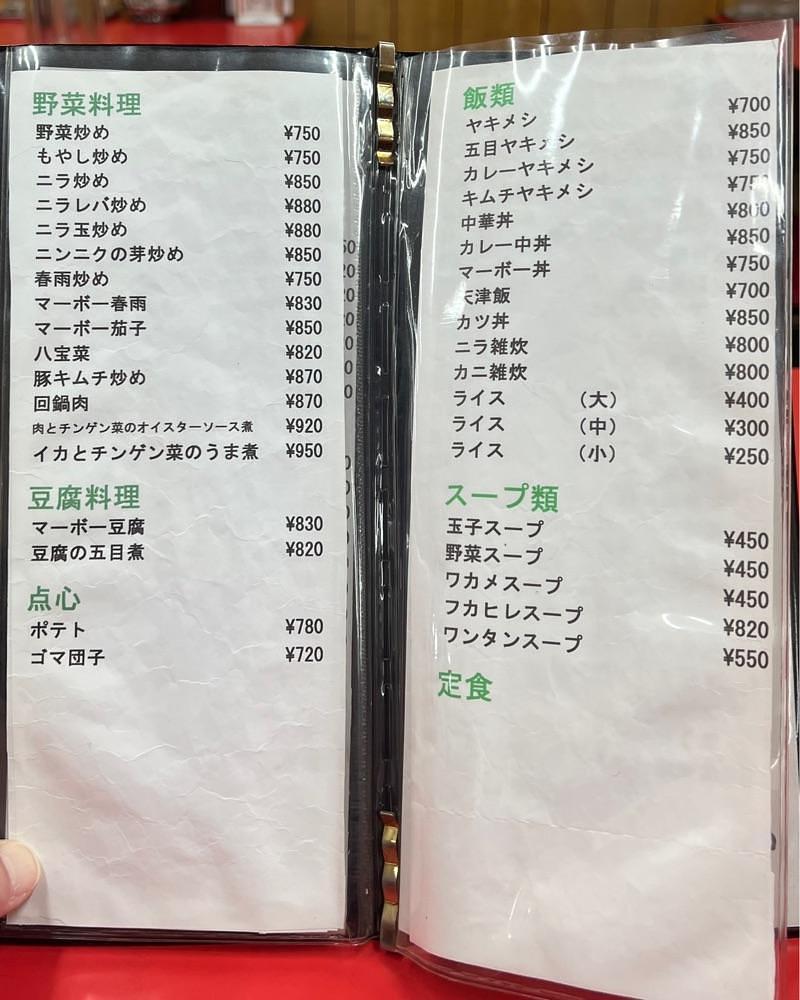 野菜料理
野菜炒め ¥750
もやし炒め ¥750
ニラ炒め ¥850
ニラレバ炒め ¥880
ニラ玉炒め ¥880
ニンニクの芽炒め ¥850
春雨炒め ¥750
マーボー春雨 ¥830
マーボー茄子 ¥850
八宝菜 ¥820
豚キムチ炒め ¥870
回鍋肉 ¥870
肉とチンゲン菜のオイスターソース煮 ¥920
イカとチンゲン菜のうま煮 ¥950
豆腐料理
マーボー豆腐 ¥830
豆腐の五目煮 ¥820
点心
ポテト ¥780
ゴマ団子 ¥720
飯類
ヤキメシ ¥700
五目ヤキメシ ¥850
カレーヤキメシ ¥750
キムチヤキメシ ¥750
中華丼 ¥800
カレー中丼 ¥850
マーボー丼 ¥750
天津飯 ¥700
カツ丼 ¥850
ニラ雑炊 ¥800
カニ雑炊 ¥800
ライス (大) ¥400
ライス (中) ¥300
ライス (小) ¥250
スープ類
玉子スープ ¥450
野菜スープ ¥450
ワカメスープ ¥450
フカヒレスープ ¥820
ワンタンスープ ¥550
定食